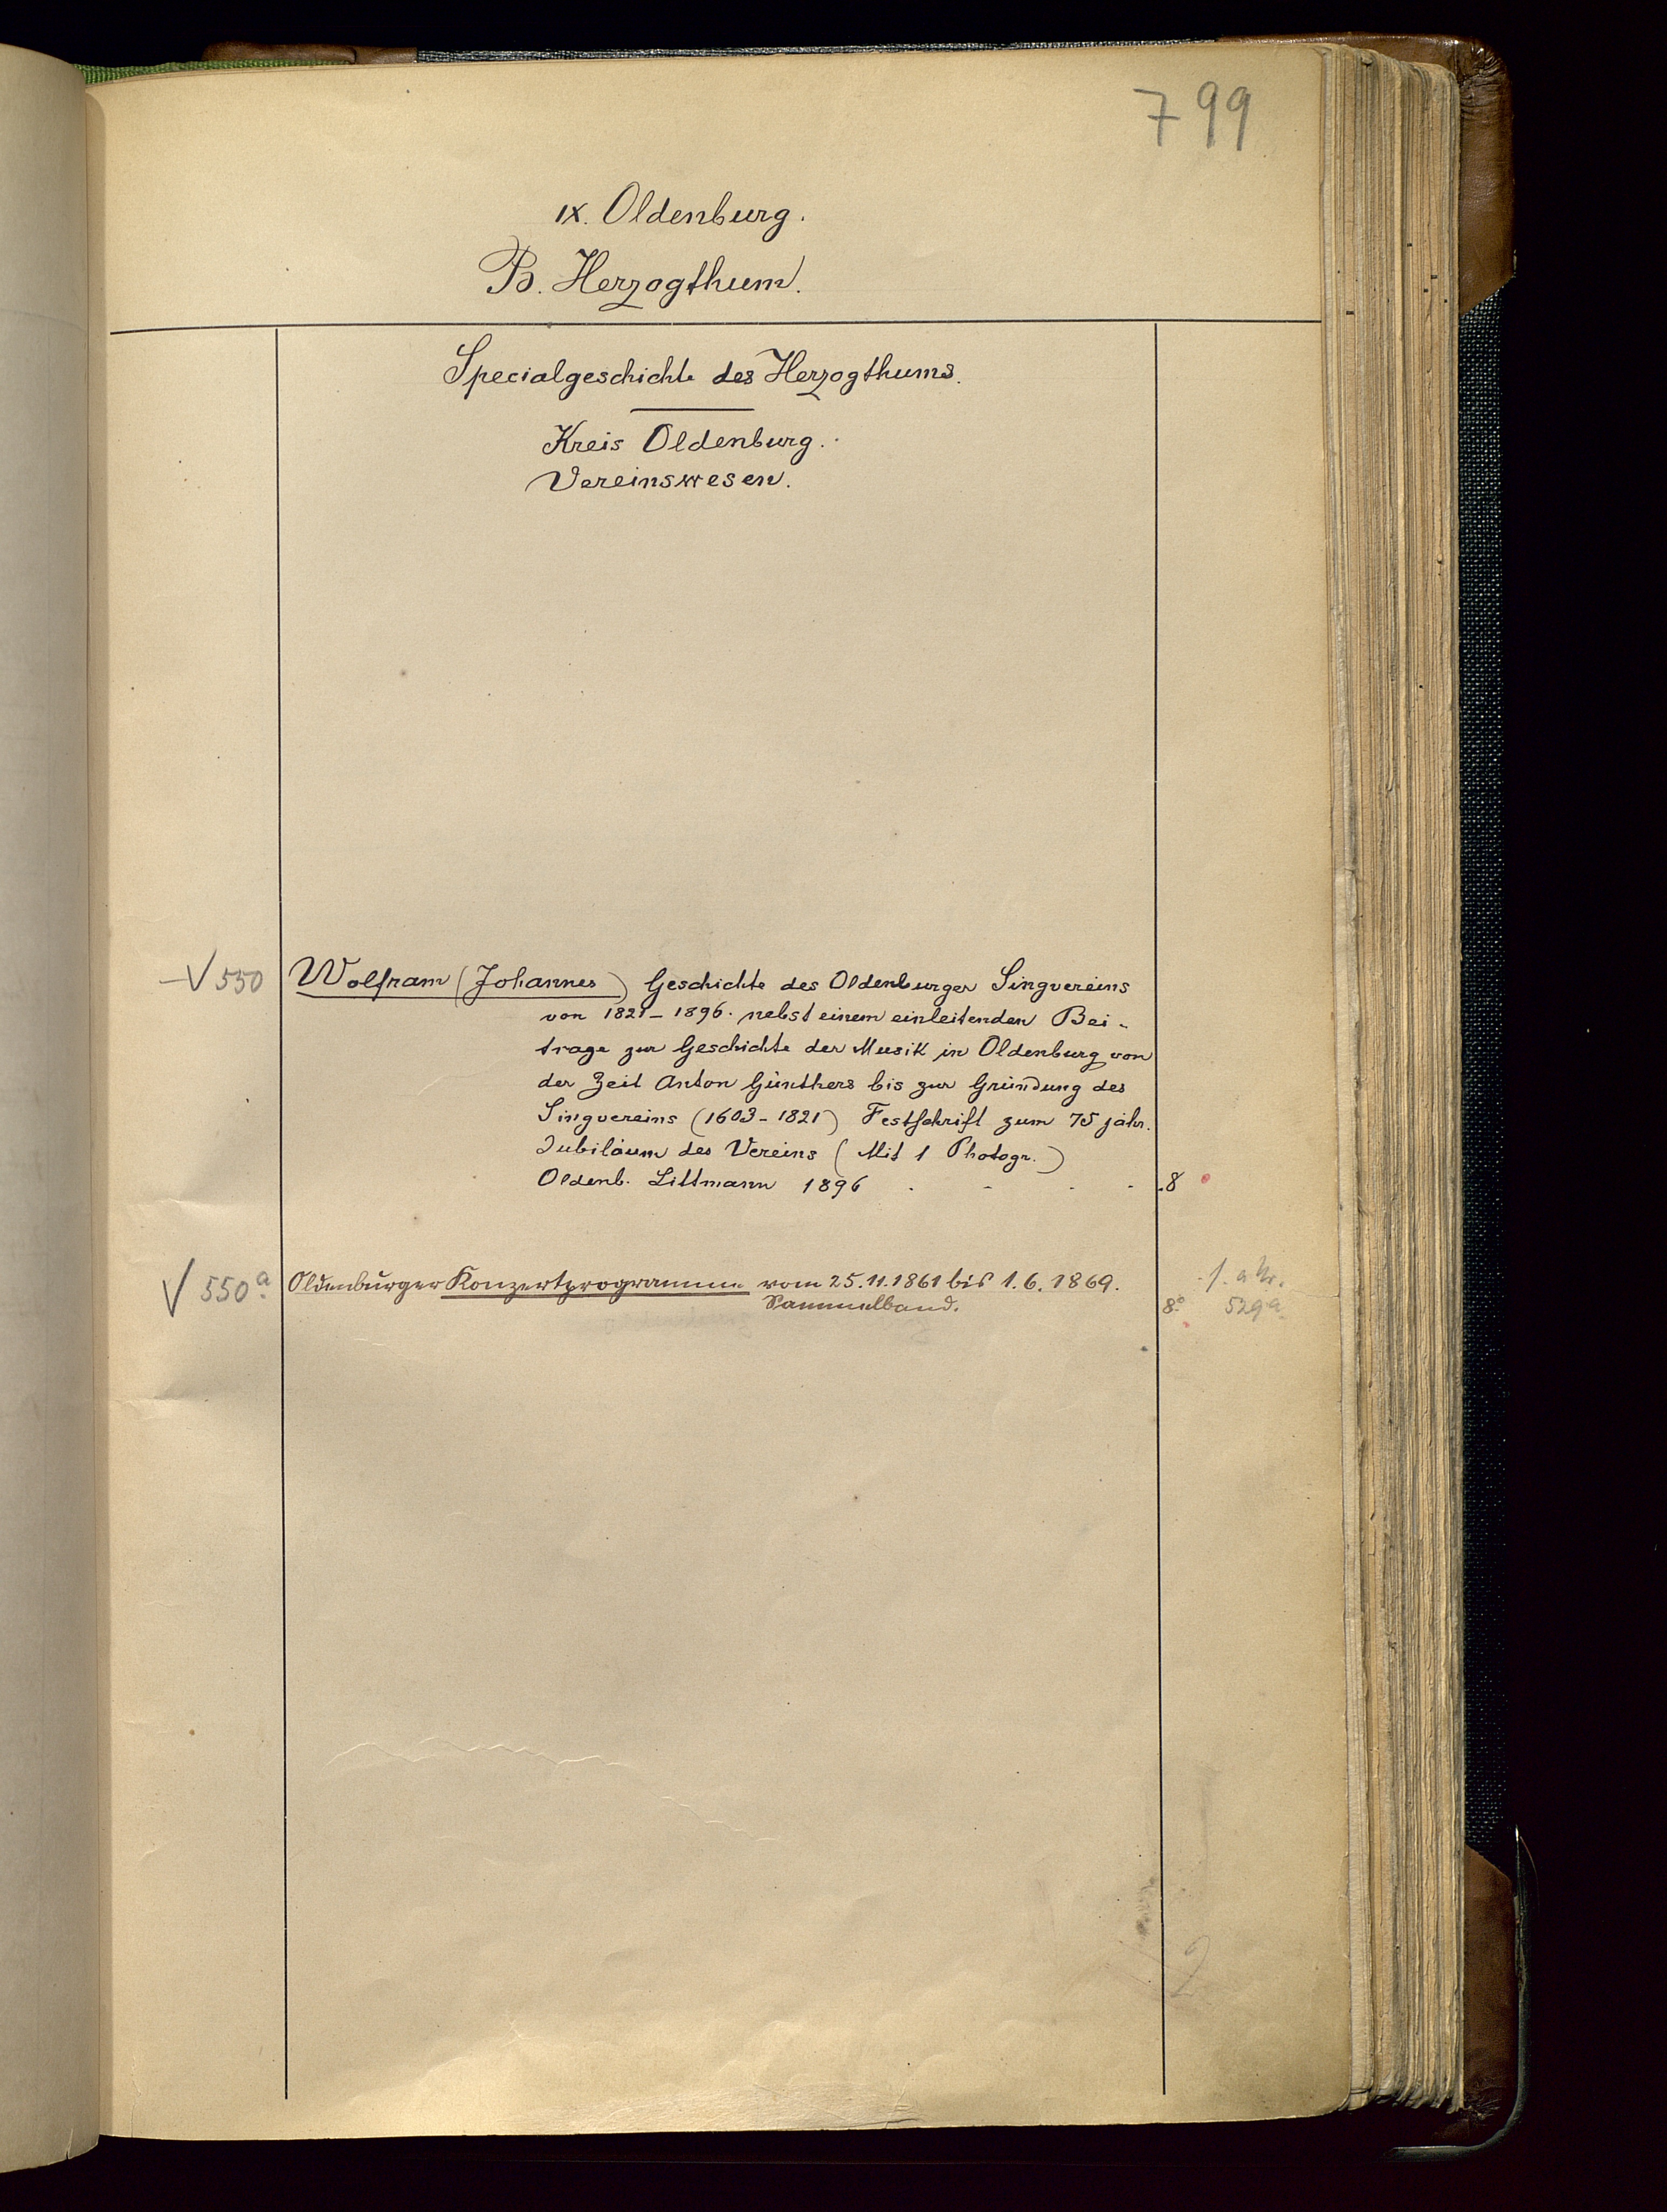 799
IX. Oldenburg.
B. Herzogthum.
Specialgeschichte des Herzogthums.
Kreis Oldenburg.
Vereinswesen.
550 Wolfram (Johannes) Geschichte des Oldenburger Singvereins
von 1821-1896. nebst einem einleitenden Bei-
trage zur Geschichte der Musik in Oldenburg von
der Zeit Anton Günthers bis zur Gründung des
Singvereins (1603-1821) Festschrift zum 75 jähr.
Jubiläum des Vereins (Mit 1 Photogr.)
Oldenb. Littmann 1896 . - . - . 8
550a Oldenburger Konzertprogramme vom 25.11.1861 bis 1.6.1869.
Sammelband. 8° 529a